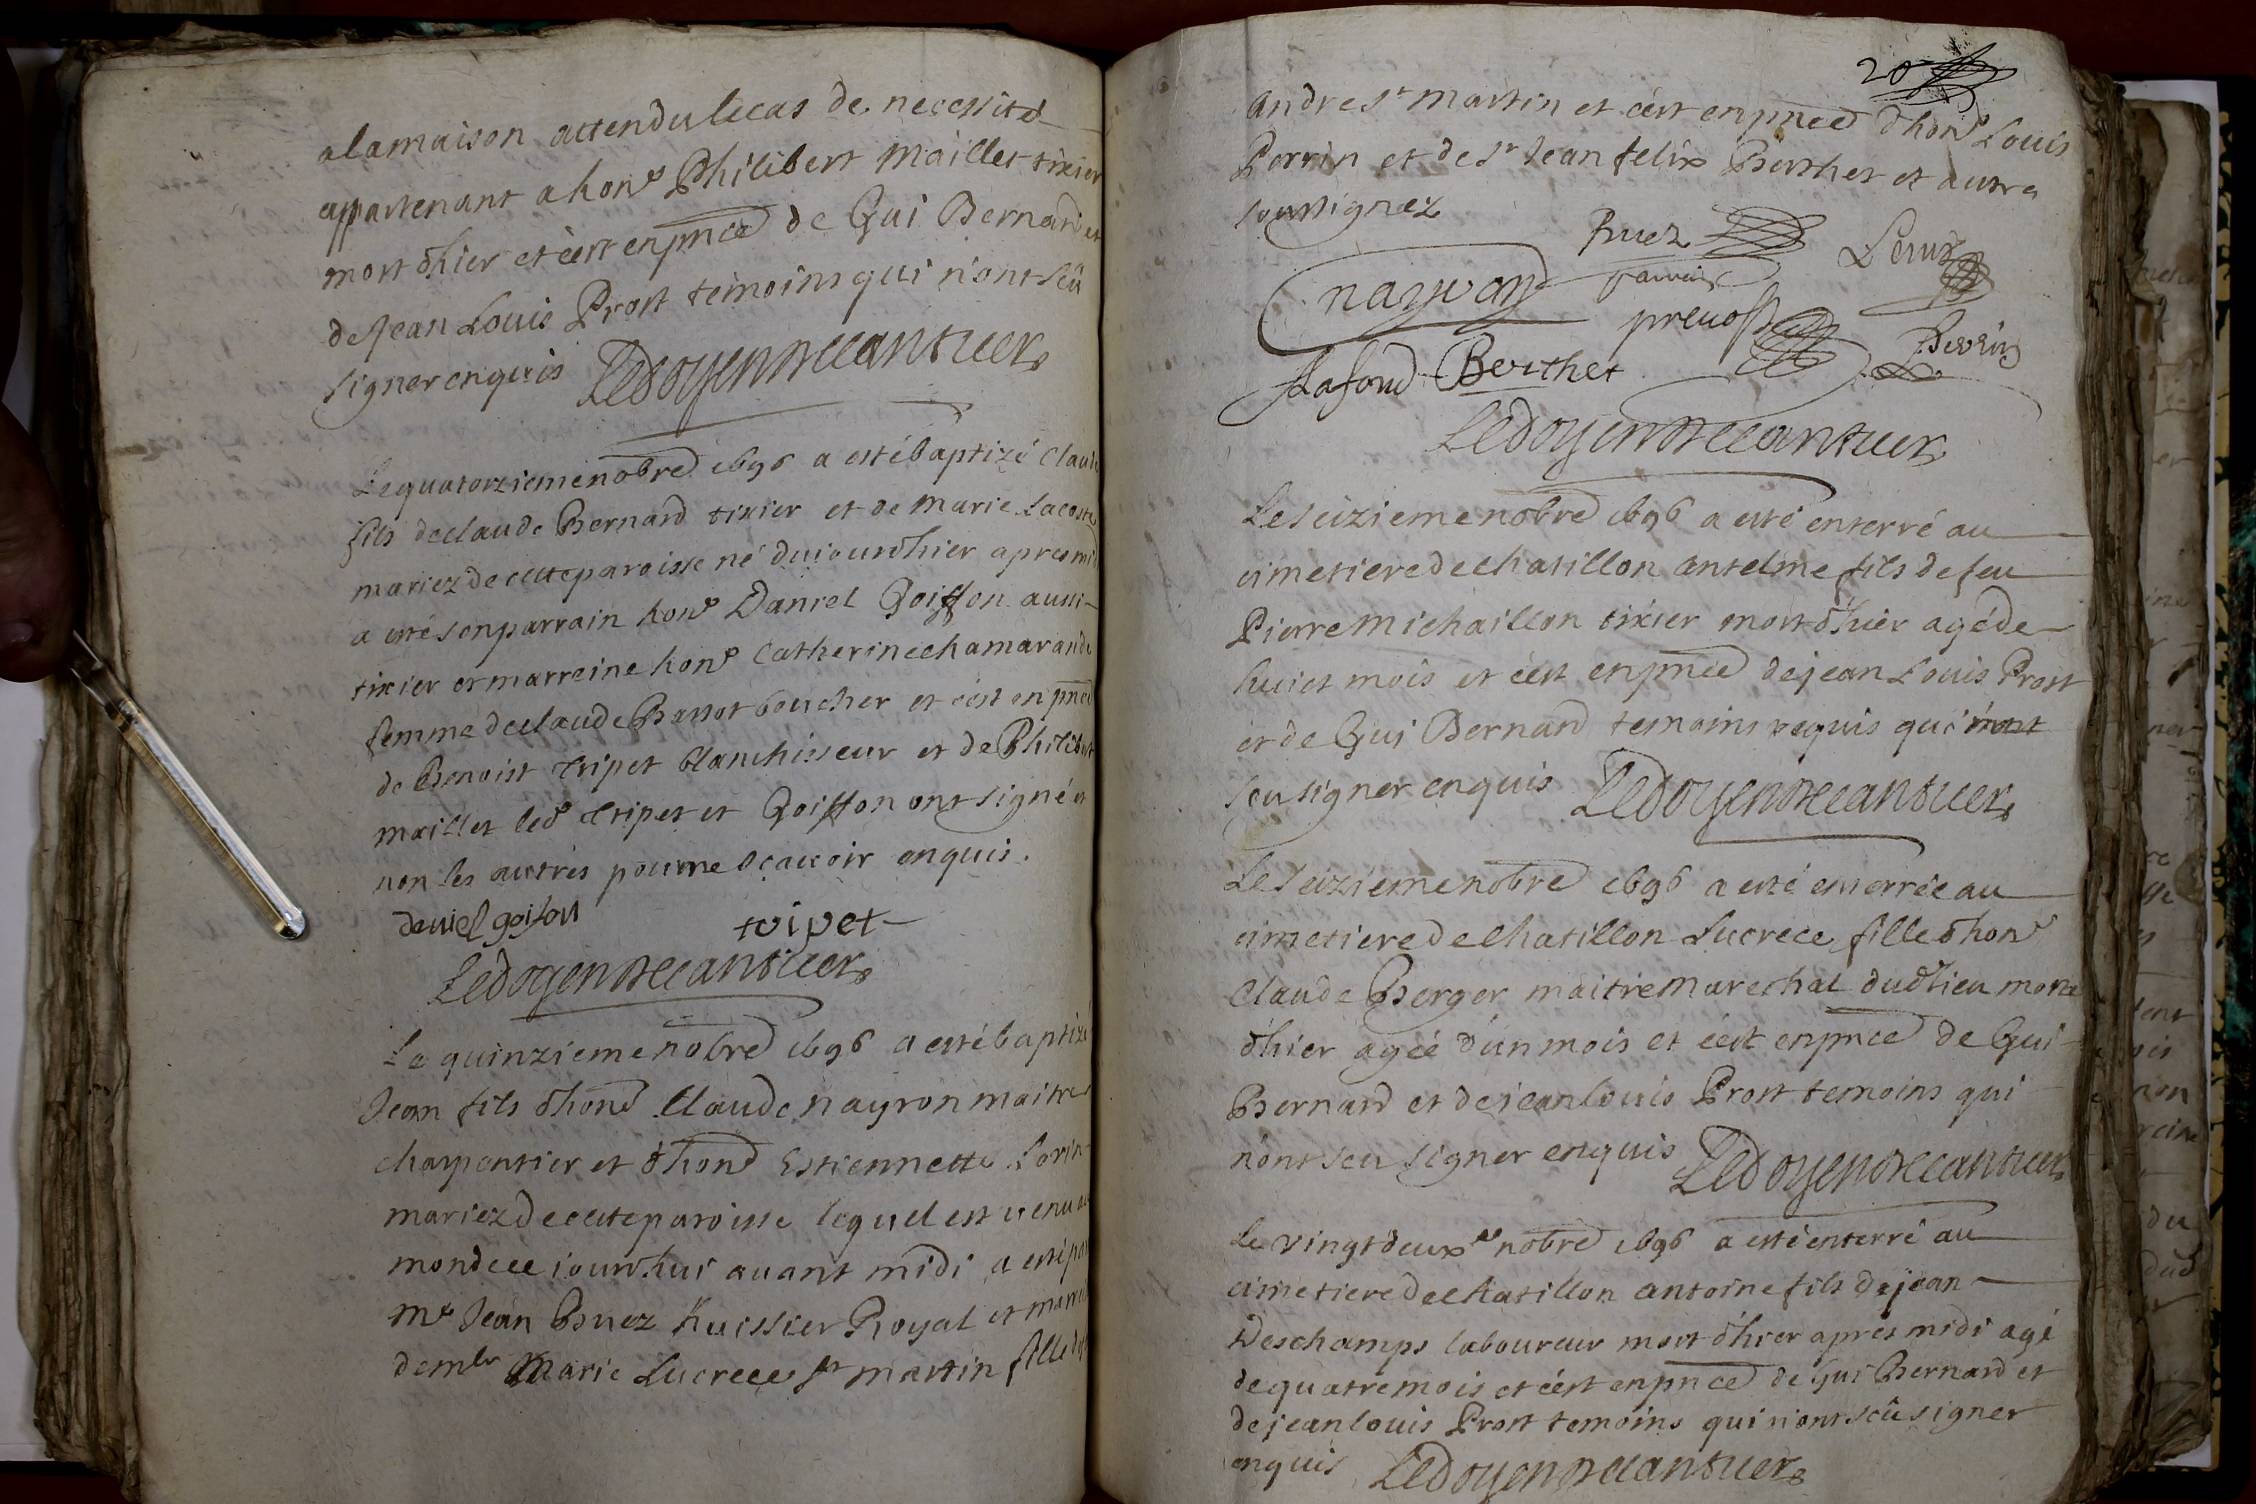 a la maison attendu le cas de necessité
appartenant a hon^e Philibert Maillet tixier
mort d'hier et c'est en pnce de Gui Bernard et
de Jean Louis Prost temoins qui n'ont sçû
signer enquis Ledoyen
Le quatorzieme nobre 1696 a esté baptizé Claude
fils de claude Bernard tixier et de Marie Lacoste
mariez de cette paroisse né du iourd'hier apres midi
a esté son parrain hon^e Daniel Goiffon aussi
tixier et marreine hon^e Catherine Chamarande
femme de claude Bassot boucher et c'est en pnce
de Benoist Tripet blanchisseur et de Philibert
Maillet led Tripet et Goiffon ont signé et
non les autres pour ne sçavoir enquis.
daniel goifon tripet
Ledoyen
Le quinzieme nobre 1696 a esté baptizé
Jean fils d'hon^e Claude Nayron maitre
charpentier et d'hon^e Estiennette Lorin
mariez de cette paroisse lequel est venu au
monde ce iourd'hui avant midi a esté par
M^e Jean Bruez huissier Royal et marr
dem^lle Marie Lucrece S^t Martin fille de
20
Andre S^t Martin et c'est en pnce d'hon^e Louis
Perrin et de S^r Jean Felix Berthet et autres
soussignez
Bruez
Nayron parrain
prevost Perrin
Lafond Berthet
Ledoyen
Le seizieme nobre 1696 a esté enterré au
cimetiere de Chatillon Antelme fils de feu
Pierre Michaillon tixier mort d'hier agé de
huict mois et c'est en pnce de jean Louis Prost
et de Gui Bernard temoins requis qui n'ont
sçeu signer enquis Ledoyen
Le seizieme nobre 1696 a esté enterrée au
cimetiere de Chatillon Lucrece fille d'hon^e
Claude Berger maitre Marechal dud lieu morte
d'hier agée d'un mois et c'est en pnce de Gui
Bernard et de jean louis Prost temoins qui
n'ont sçeu signer enquis Ledoyen
Le vingt deux^e nobre 1696 a esté enterré au
cimetiere de Chatillon Antoine fils de jean
Deschamps laboureur mort d'hier apres midi agé
de quatre mois et c'est en pnce de Gui Bernard et
de jean louis Prost temoins qui n'ont sçû signer
enquis Ledoyen